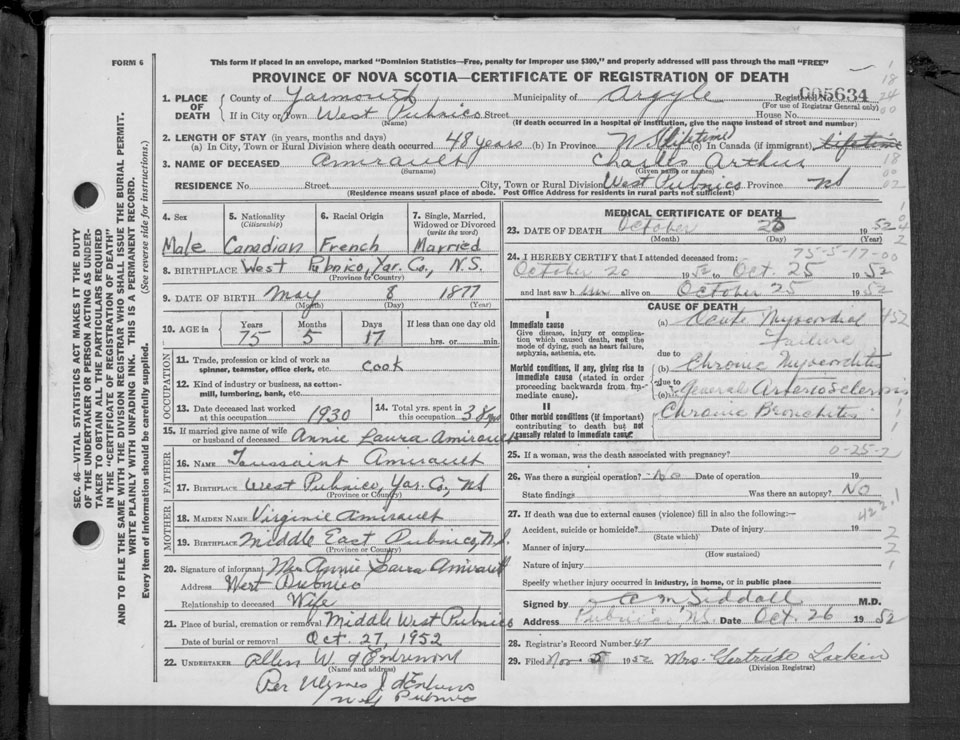 FORM 6
This form if placed in an envelope, marked "Dominion Statistics—Free, penalty for improper use $300," and properly addressed will pass through the mail "FREE"
PROVINCE OF NOVA SCOTIA—CERTIFICATE OF REGISTRATION OF DEATH
005634
1. PLACE OF DEATH
County of Yarmouth Municipality of Argyle Registered No.
(For use of Registrar General only)
If in City or Town West Pubnico Street House No.
(Name) (If death occurred in a hospital of institution, give the name instead of street and number)
2. LENGTH OF STAY (in years, months and days)
(a) In City, Town or Rural Division where death occurred 48 years (b) In Province N.S. lifetime (c) In Canada (if immigrant) lifetime
3. NAME OF DECEASED Amirault Charles Arthur
(Surname) (Given name or names)
RESIDENCE No. Street City, Town or Rural Division West Pubnico Province NS
(Residence means usual place of abode. Post Office Address for residents in rural parts not sufficient)
SEC. 46—VITAL STATISTICS ACT MAKES IT THE DUTY
OF THE UNDERTAKER OR PERSON ACTING AS UNDER-
TAKER TO OBTAIN ALL THE PARTICULARS REQUIRED
IN THE "CERTIFICATE OF REGISTRATION OF DEATH"
AND TO FILE THE SAME WITH THE DIVISION REGISTRAR WHO SHALL ISSUE THE BURIAL PERMIT.
WRITE PLAINLY WITH UNFADING INK. THIS IS A PERMANENT RECORD.
Every item of information should be carefully supplied. (See reverse side for instructions.)
4. Sex
Male
5. Nationality
(Citizenship)
Canadian
6. Racial Origin
French
7. Single, Married,
Widowed or Divorced
(write the word)
Married
8. BIRTHPLACE West Pubnico, Yar. Co., N.S.
(Province or Country)
9. DATE OF BIRTH May 8 1877
(Month) (Day) (Year)
10. AGE in Years Months Days If less than one day old
75 5 17 hrs. or min.
OCCUPATION
11. Trade, profession or kind of work as
spinner, teamster, office clerk, etc. Cook
12. Kind of industry or business, as cotton-
mill, lumbering, bank, etc.
13. Date deceased last worked
at this occupation 1930
14. Total yrs. spent in
this occupation 38 yrs
15. If married give name of wife
or husband of deceased Annie Laura Amirault
FATHER
16. NAME Toussaint Amirault
17. BIRTHPLACE West Pubnico, Yar. Co., NS
(Province or Country)
MOTHER
18. MAIDEN NAME Virginie Amirault
19. BIRTHPLACE Middle East Pubnico, N.S.
(Province or Country)
20. Signature of informant Mrs Annie Laura Amirault
Address West Pubnico
Relationship to deceased Wife
21. Place of burial, cremation or removal Middle West Pubnico
Date of burial or removal Oct. 27 1952
22. UNDERTAKER Allen W d'Entremont
(Name and address)
Per Ulysses J. d'Entremont
West Pubnico
MEDICAL CERTIFICATE OF DEATH
23. DATE OF DEATH October 25 1952
(Month) (Day) (Year)
75-5-17-00
24. I HEREBY CERTIFY that I attended deceased from:
October 20 1952 to Oct. 25 1952
and last saw him alive on October 25 1952
CAUSE OF DEATH
I
Immediate cause
Give disease, injury or complica-
tion which caused death, not the
mode of dying, such as heart failure,
asphyxia, asthenia, etc.
(a) Acute Myocardial
Failure
due to
Morbid conditions, if any, giving rise to
immediate cause (stated in order
proceeding backwards from im-
mediate cause).
(b) Chronic Myocarditis
due to
(c) General Arteriosclerosis
II
Other morbid conditions (if important)
contributing to death but not
causally related to immediate cause.
Chronic Bronchitis
25. If a woman, was the death associated with pregnancy?
26. Was there a surgical operation? No Date of operation 19
State findings Was there an autopsy? NO
27. If death was due to external causes (violence) fill in also the following:—
Accident, suicide or homicide? Date of injury 19
(State which)
Manner of injury
(How sustained)
Nature of injury
Specify whether injury occurred in industry, in home, or in public place
Signed by A M Siddall M.D.
Address Pubnico, N.S. Date Oct. 26 1952
28. Registrar's Record Number 47
29. Filed Nov. 5 1952 Mrs. Gertrude Larkin
(Division Registrar)